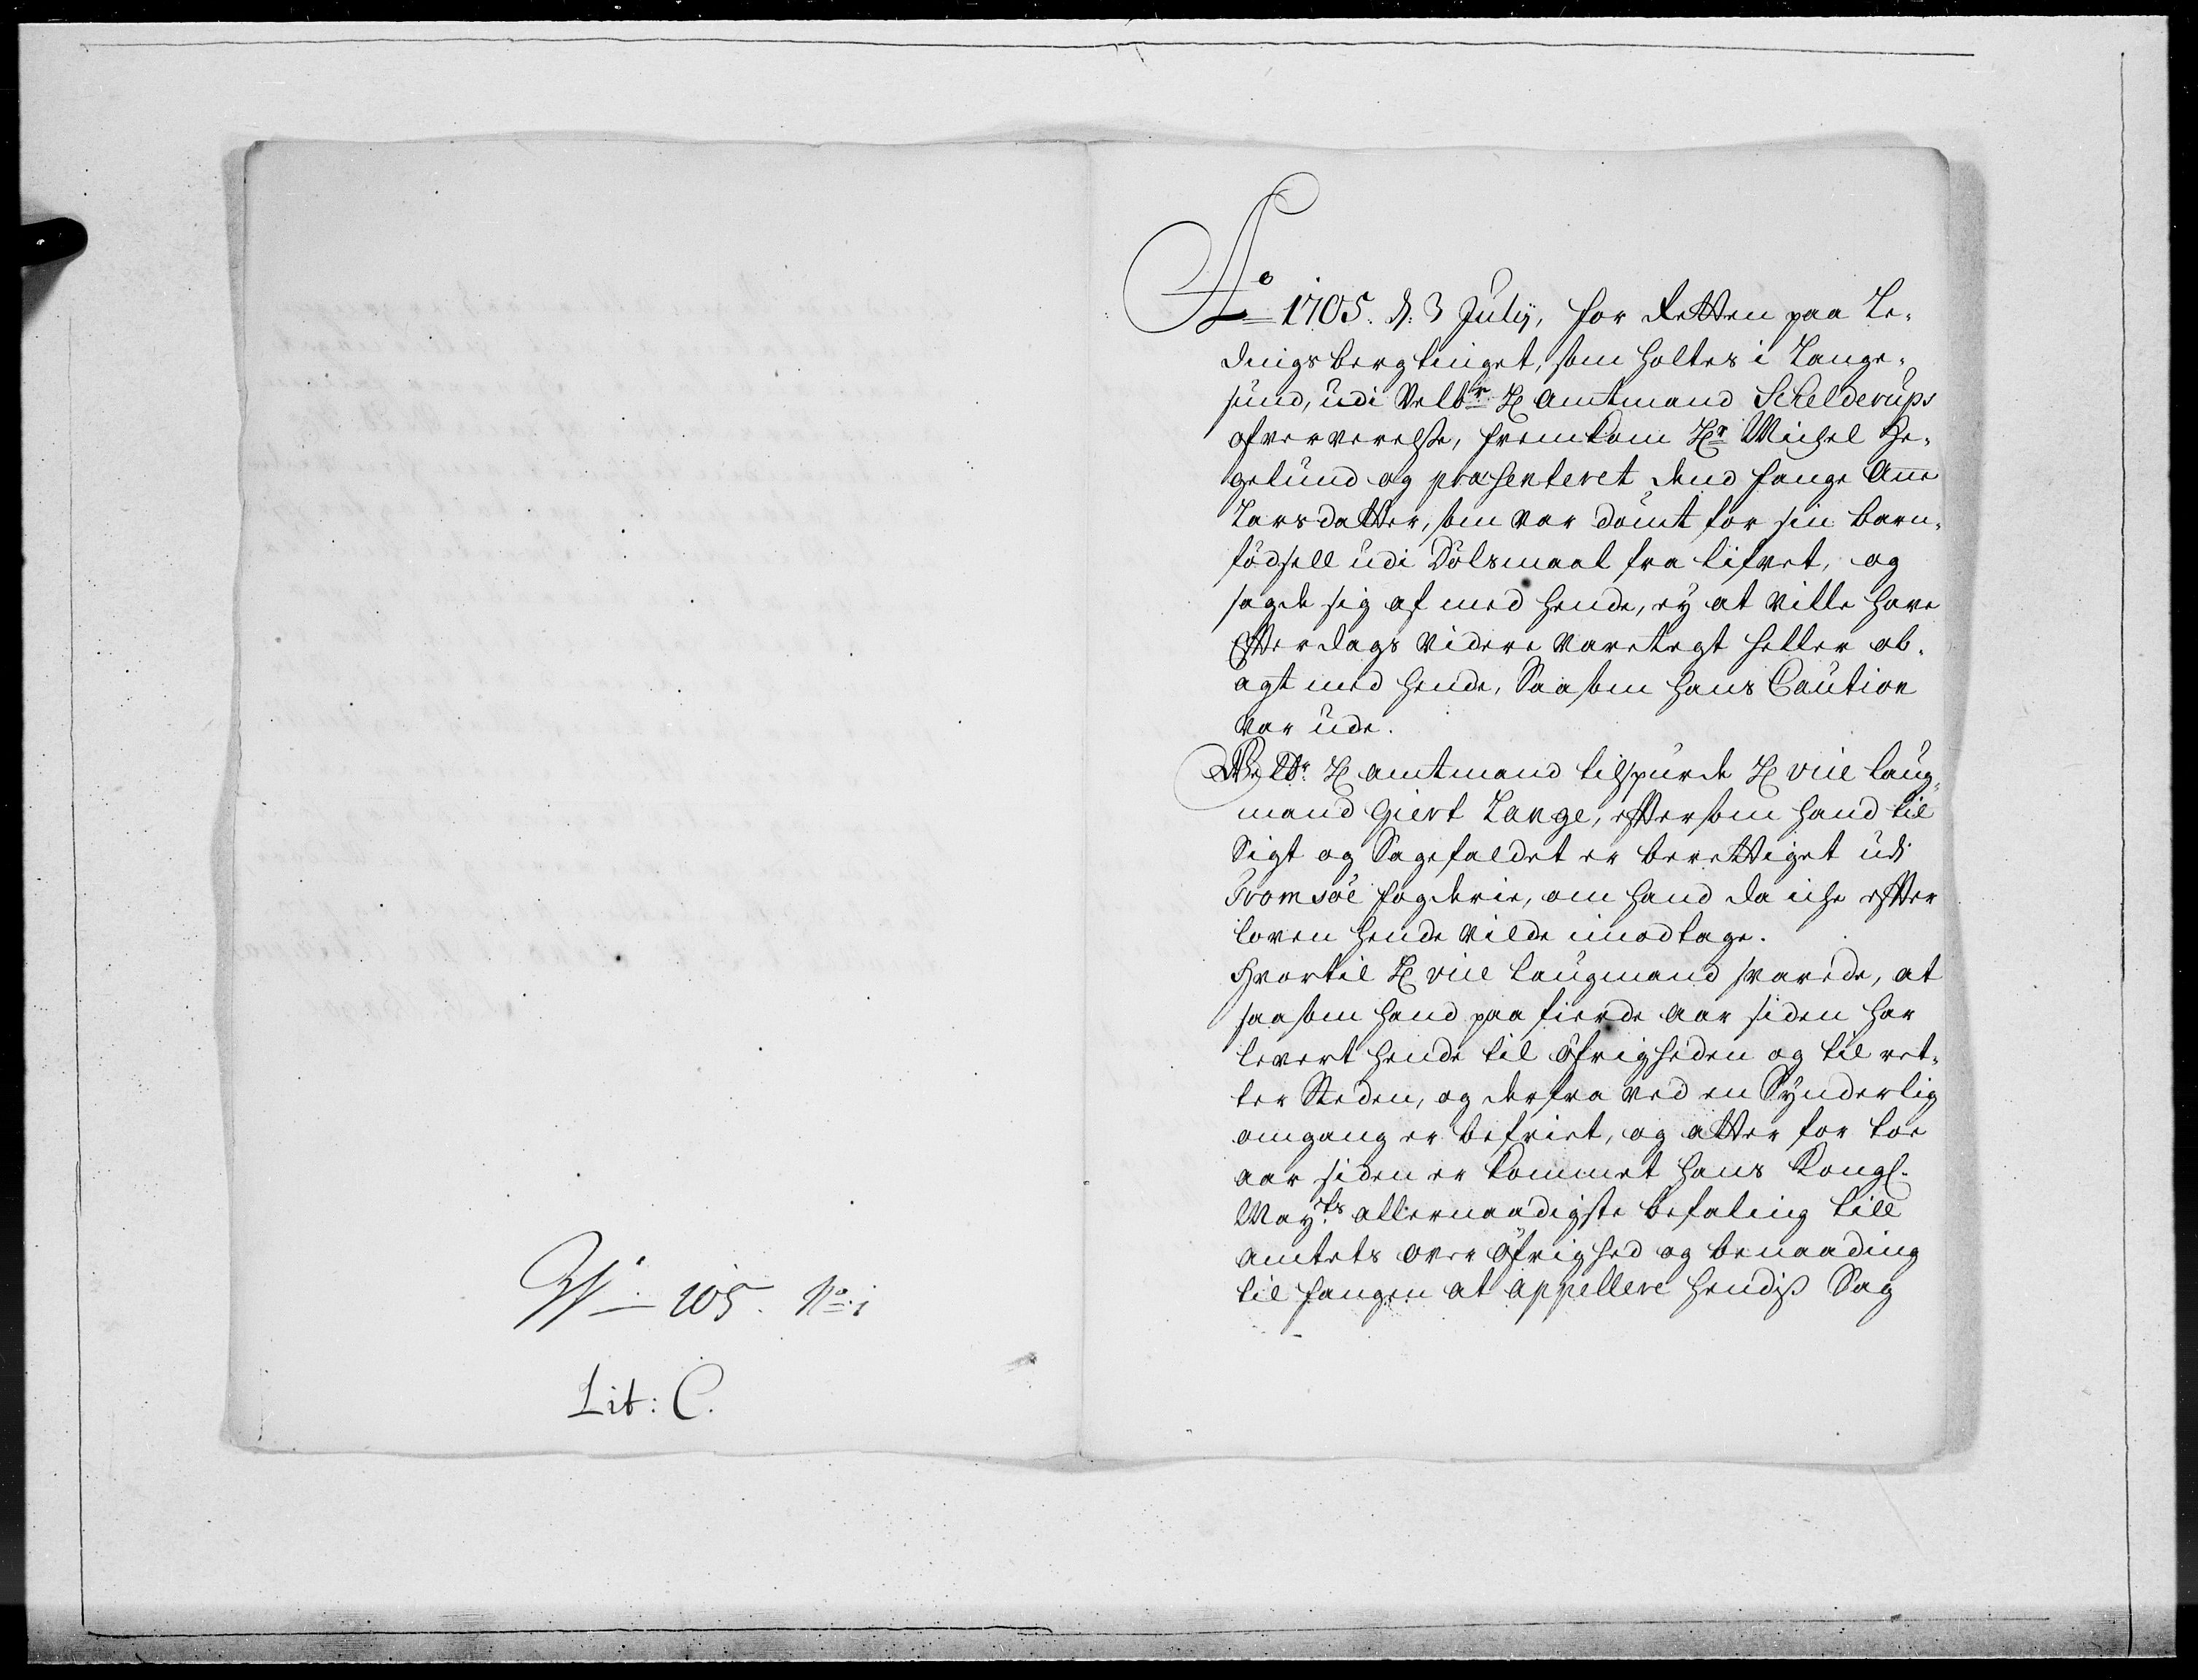 No 105. No. 1
Lit: C.
Ao 1705. d. 3 Julij, for Retten paa Le-
dingsbergtinget, som holtes i Lange-
sund, udi Velbr H Amtmand Schelderups
ofververelse, fremkom Hr Michel He-
gelund og præsenteret dend fange Anne
Larsdatter, som var dømt for sin barn-
födsell udi Dölsmaal fra lifvet, og
sagde sig af med hende, ej at ville have
efterdags videre varetegt heller ob-
agt med hende, Saasom hans Caution
var ude.
Velbr H Amtmand tilspurde H vice laug-
mand Giert Lange, eftersom hand til
Sigt og Sagefaldet er berettiget udi
Tromsöe fogderie, om hand da iche efter
loven hende vilde imodtage.
Hvortil H vice laugmand svarede, at
saasom hand paa fierde aar siden har
levert hende til öfrigheden og til ret-
ter Steden, og derfra ved en Synderlig
omgang er befriet, og atter for toe
aar siden er kommet hans Kongl.
May:ts allernaadigste befaling till
Amtets over öfrighed og benaading
til fangen at appellere hendis Sag